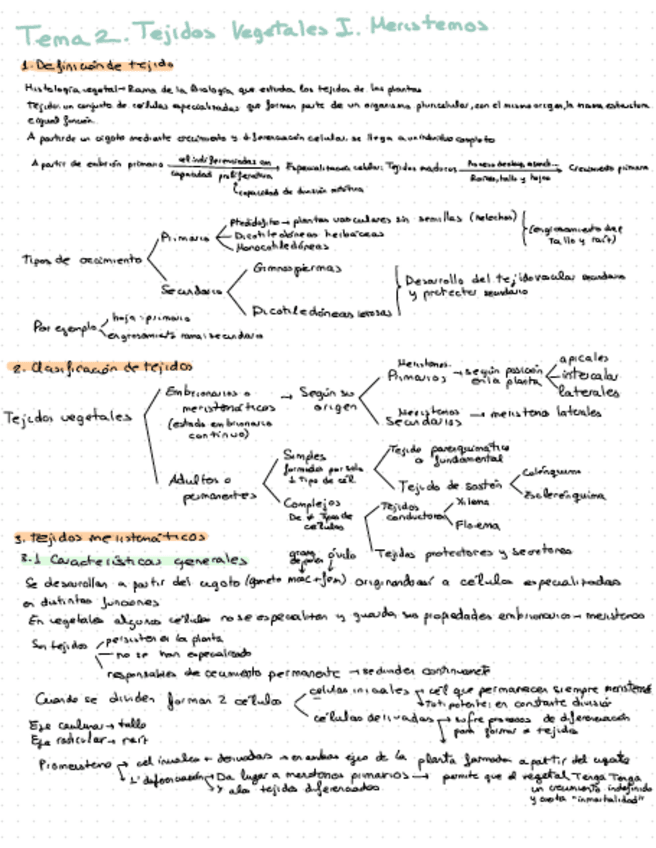 Tema 2. Tejidos Vegetales I. Meristemos
1. Definición de tejido
Histología vegetal → Rama de la Biología que estudia los tejidos de las plantas
Tejido: un conjunto de células especializadas que forman parte de un organismo pluricelular, con el mismo origen, la misma estructura
e igual función.
A partir de un cigoto mediante crecimiento y diferenciación celular, se llega a un individuo completo
A partir de embrión primario cel. indiferenciadas con capacidad proliferativa → Especialización celular: Tejidos maduros → Raíces, tallo y hojas Crecimiento primario
capacidad de división mitótica
Tipos de crecimiento
Primario
Pteridofito → plantas vasculares sin semillas (helechos)
Dicotiledóneas herbáceas
Monocotiledóneas
(engrosamiento del
tallo y raíz)
Secundario
Gimnospermas
Dicotiledóneas leñosas
Desarrollo del tejido vascular secundario
y protector secundario
Por ejemplo
hoja: primario
engrosamiento rama: secundario
2. Clasificación de tejidos
Tejidos vegetales
Embrionarios o
meristemáticos
(estado embrionario
continuo)
→ Según su
origen
Meristemos
Primarios → según posición
en la planta
apicales
intercalar
laterales
Meristemos
Secundarios → meristemo laterales
Adultos o
permanentes
Simples
formados por solo
1 tipo de cél
Tejido parenquimático
o fundamental
Tejido de sostén
Colénquima
Esclerénquima
Complejos
De ≠ tipos de
células
Tejidos
conductores
Xilema
Floema
Tejidos protectores y secretores
3. Tejidos meristemáticos
3.1 Características generales
grano de polen óvulo
Se desarrollan a partir del cigoto (gameto masc + fem) originándose así a células especializadas
en distintas funciones
En vegetales algunas células no se especializan y guarda sus propiedades embrionarias → meristemos
Son tejidos
persisten en la planta
no se han especializado
responsables de crecimiento permanente →
Cuando se dividen forman 2 células
células iniciales → cél que permanecen siempre meristemo
Totipotente: en constante división
células derivadas → sufre procesos de diferenciación
para formar ≠ tejidos
Eje caulinar → tallo
Eje radicular → raíz
Promeristemo → cel iniciales + derivadas → en ambos ejes de la planta formada a partir del cigoto
Da lugar a meristemos primarios → permite que el vegetal Tenga Tenga
y a los tejidos diferenciados
un crecimiento indefinido
y cierta "inmortalidad"